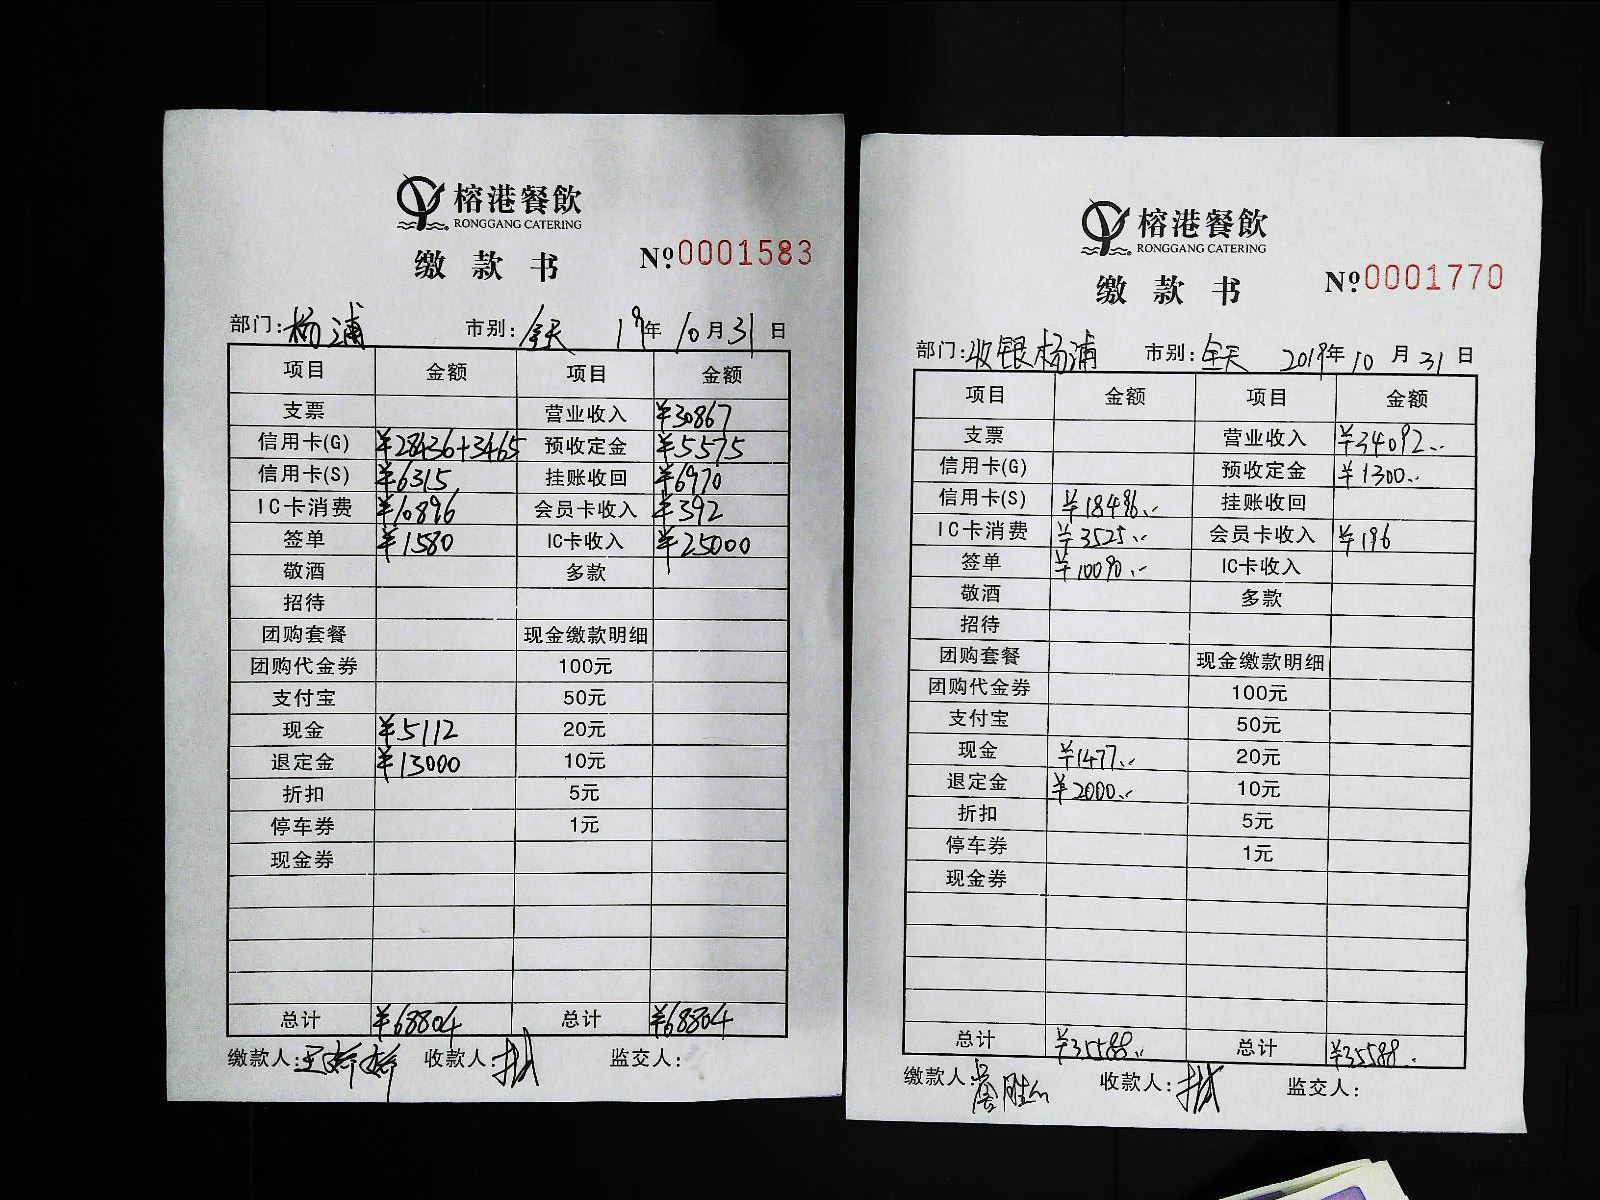 榕港餐飲
RONGGANG CATERING
缴款书 №0001583
部门:杨浦 市别:全天 19年10月31日
项目 金额 项目 金额
支票 营业收入 ¥30867
信用卡(G) ¥28436+3465 预收定金 ¥5575
信用卡(S) ¥6315 挂账收回 ¥6970
IC卡消费 ¥10896 会员卡收入 ¥392
签单 ¥1580 IC卡收入 ¥25000
敬酒 多款
招待
团购套餐 现金缴款明细
团购代金券 100元
支付宝 50元
现金 ¥5112 20元
退定金 ¥13000 10元
折扣 5元
停车券 1元
现金券
总计 ¥68804 总计 ¥68804
缴款人: 收款人: 监交人:
榕港餐飲
RONGGANG CATERING
缴款书 №0001770
部门:收银杨浦 市别:全天 2019年10月31日
项目 金额 项目 金额
支票 营业收入 ¥34092.-
信用卡(G) 预收定金 ¥1300.-
信用卡(S) ¥18496.- 挂账收回
IC卡消费 ¥3525.- 会员卡收入 ¥196
签单 ¥10090.- IC卡收入
敬酒 多款
招待
团购套餐 现金缴款明细
团购代金券 100元
支付宝 50元
现金 ¥1477.- 20元
退定金 ¥2000.- 10元
折扣 5元
停车券 1元
现金券
总计 ¥35588.- 总计 ¥35588.
缴款人: 收款人: 监交人: